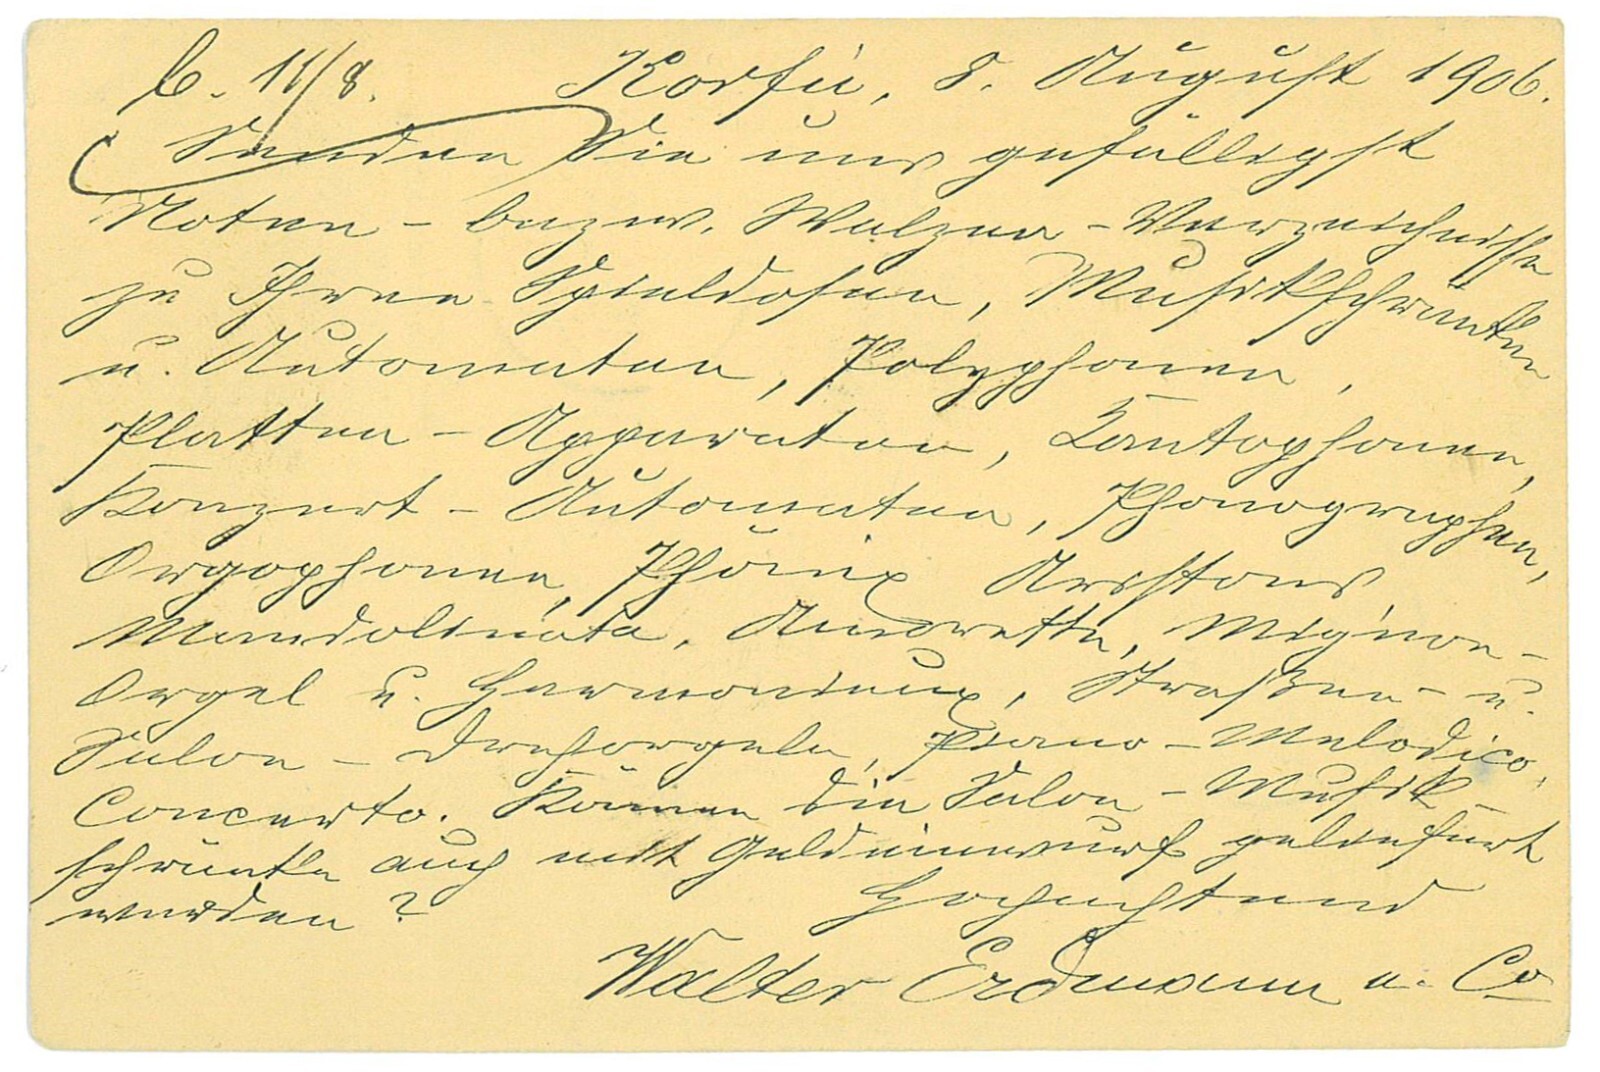 b. 11/8. Korfu, 8. August 1906.
Senden Sie uns gefälligst
Noten- bezw. Walzen-Verzeichnisse
zu Ihren Spieldosen, Musikschränken
u. Automaten, Polyphonen,
Platten-Apparaten, Kantophonen,
Konzert-Automaten, Phonographen,
Orgophonen, Phönix Aristons
Mandolinata, Amorette, Mignon-
Orgel u. Harmonieux, Straßen- u.
Salon-Drehorgeln, Piano-Melodico,
Concerto. Können die Salon-Musik-
schränke auch mit Geldeinwurf geliefert
werden? Hochachtend
Walter Erdmann u. Co